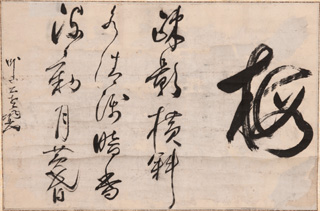 梅
疎影横斜
水清浅暗香
浮動月黄昏